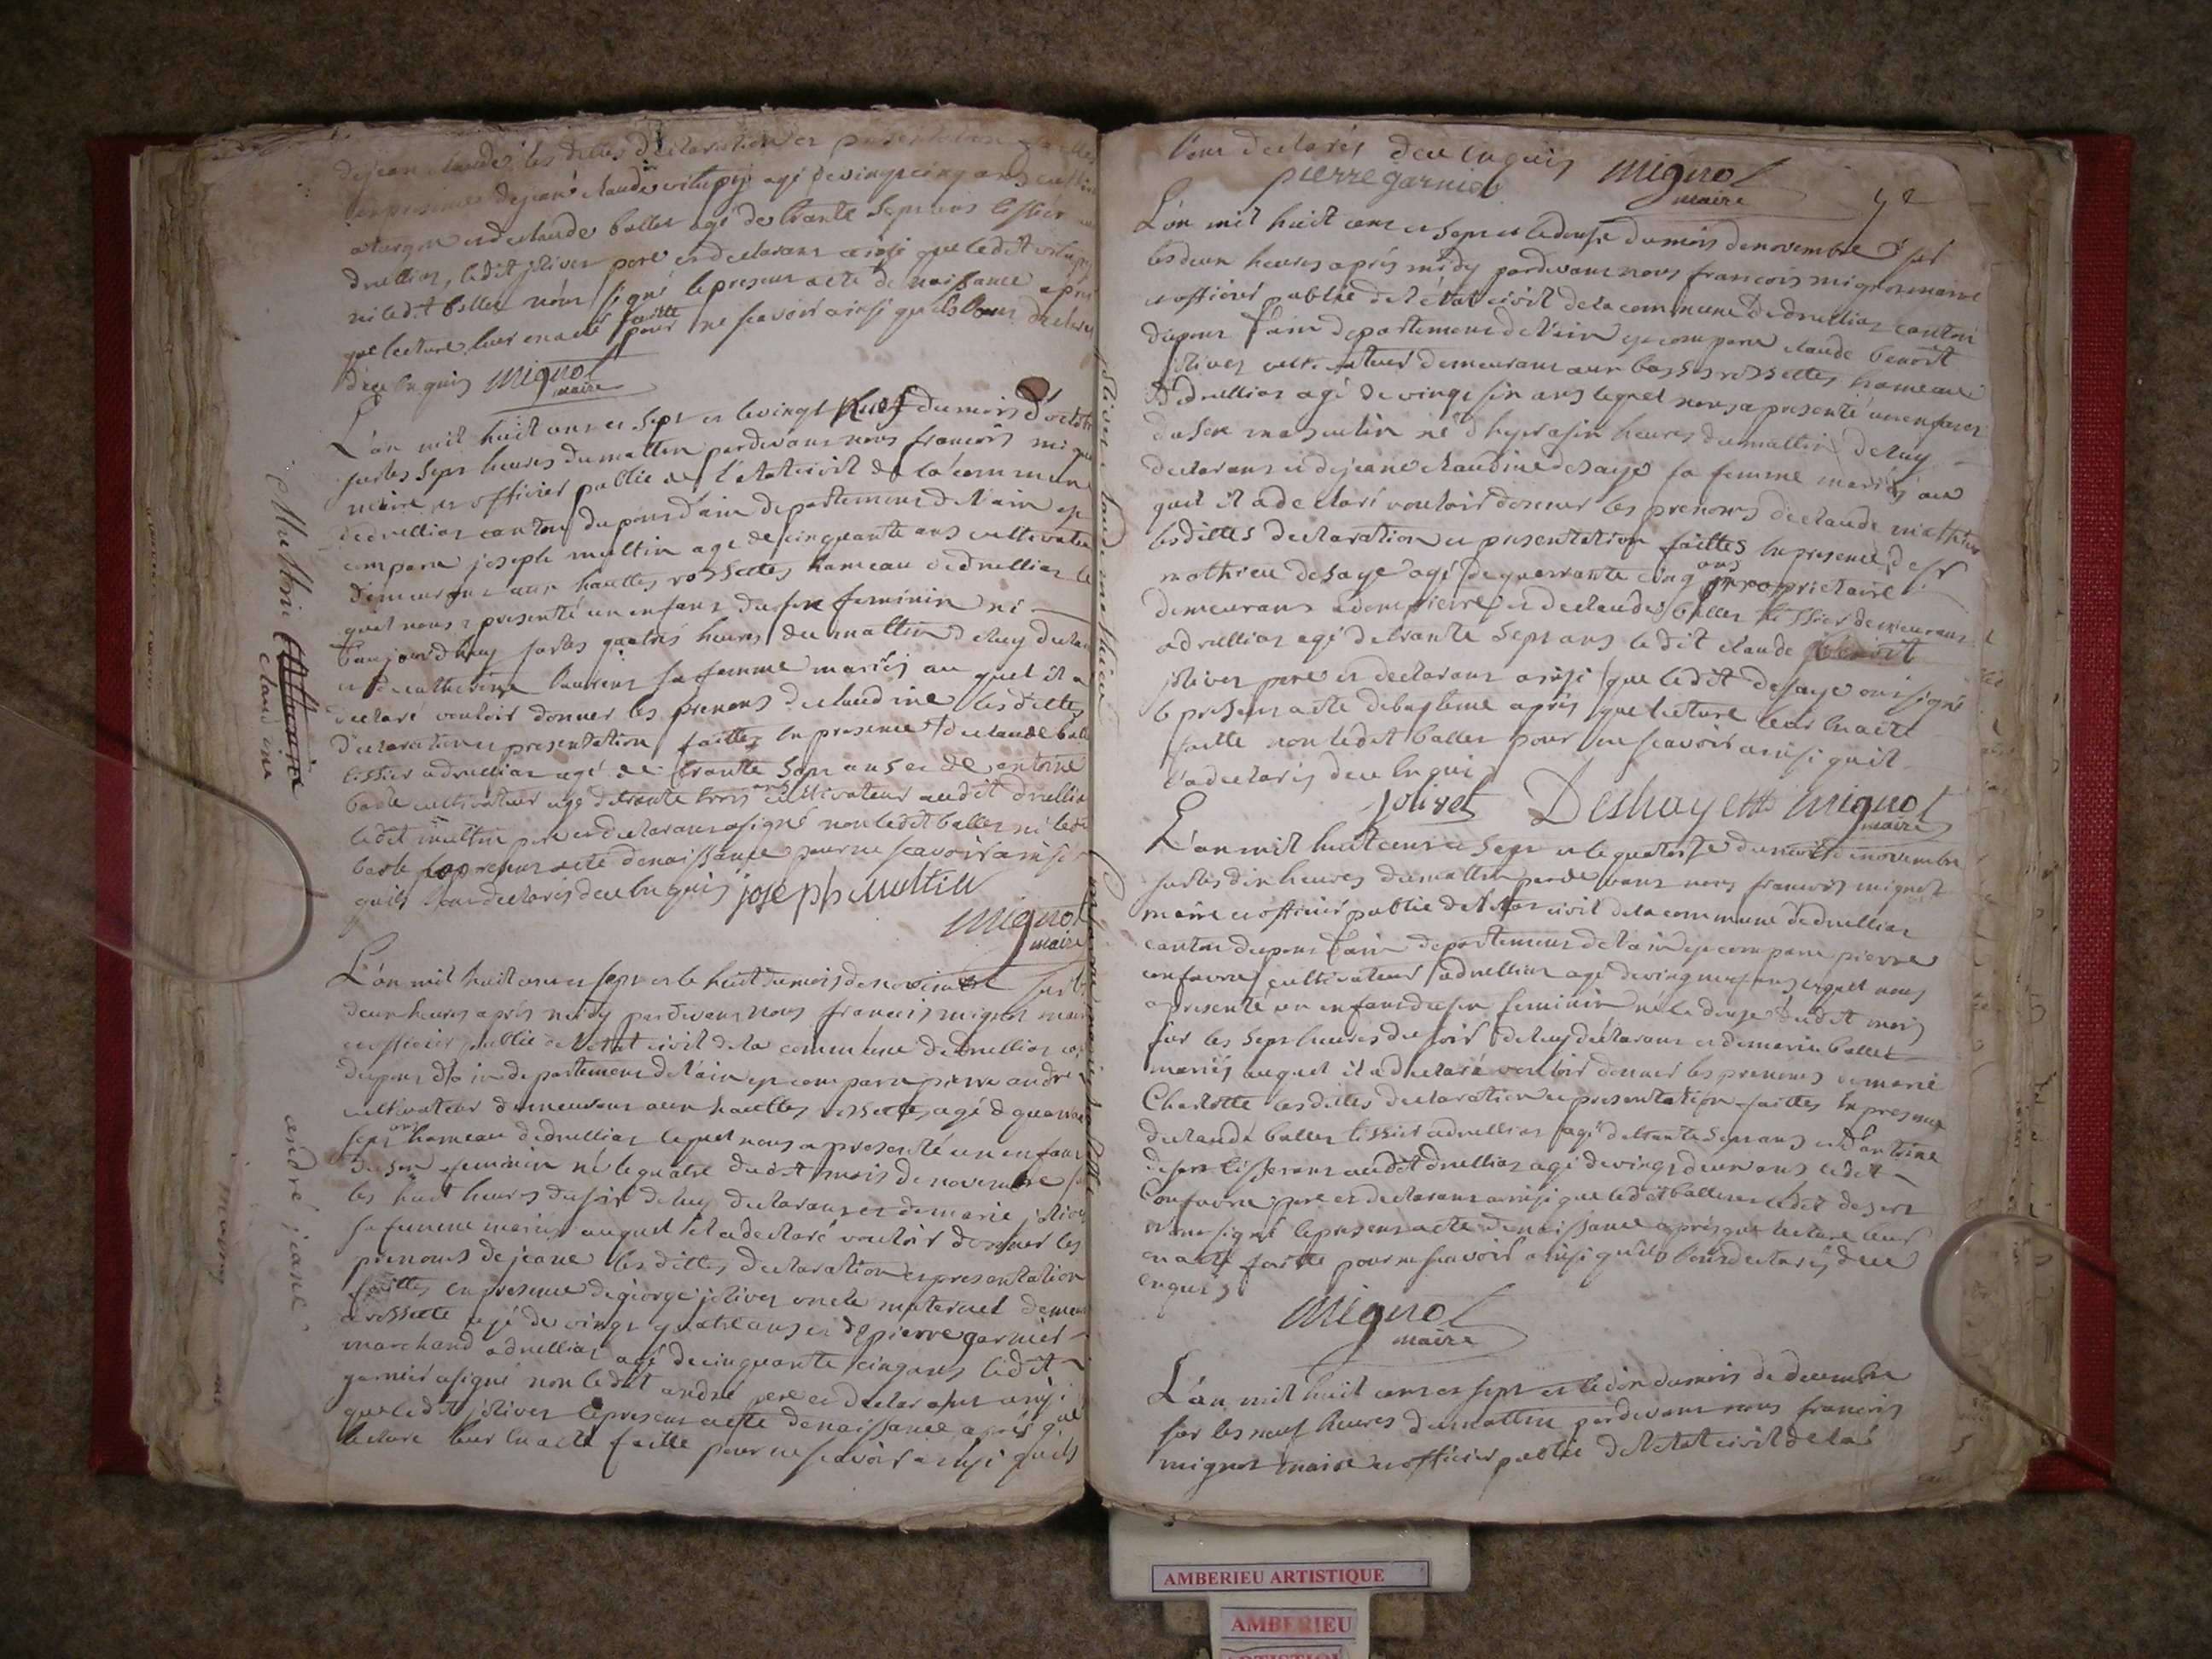 de jean claude les dittes declaration et presentation faittes
en presence de jean claude agé de vingt cinq ans
et de claude ballet agé de trante sept ans tissier
druillias, ledit jolivet pere et declarant ainsi que ledit
ni ledit ballet n'ont signé le present acte de naissance apres
que lecture leur en a eté faitte pour ne scavoir ainsi quils l'ont declaré
de ce enquis mignot
maire
L'an mil huit cent et sept et le vingt neuf du mois d'octobre
sur les sept heures du mattin pardevant nous francois mignot
maire et officier public de l'état civil de la commune
de druillias canton du pont d'ain departement de l'ain est
comparu joseph multin agé de cinquante ans cultivateur
demeurant aux hauttes rossettes hameau de druillias le
quel nous a presenté un enfant du sexe feminin né
aujourd'huy sur les quatres heures du mattin de luy declarant
et de catherine laurent sa femme mariés au quel il a
declaré vouloir donner les prenoms de claudine les dittes
declaration et presentation faittes en presence de claude ballet
tissier a druillias agé de trante sept ans et de antoine
barbe cultivateur agé de trante trois ans cultivateur audit druillias
ledit multin pere et declarant a signé non ledit ballet ni ledit
barbe le present acte de naissance pour ne scavoir ainsi
quils l'ont declarés de ce enquis joseph multin
mignot
maire
L'an mil huit cent et sept et le huit du mois de novembre sur les
deux heures après midy pardevant nous francois mignot maire
et officier public de l'état civil de la commune de druillias canton
du pont d'ain departement de l'ain est comparu pierre andré
cultivateur demeurant aux hauttes rossettes agé de quarante
sept ans hameau de druillias lequel nous a presenté un enfant
du sexe feminin né le quatre dudit mois de novembre sur
les huit heures du soir de luy declarant et de marie jolivet
sa femme mariés auquel il a declaré vouloir donner les
prenoms de jeane les dittes declaration et presentation
faittes en presence de giorge jolivet oncle maternel demeurant
a rossette agé de vingt quatre ans et de pierre garnier
marchand a druillias agé de cinquante cinq ans ledit
garnier a signé non ledit andré pere et declarant ainsi
que ledit jolivet le present acte de naissance après que
lecture leur en a eté faitte pour ne scavoir ainsi quils
Multin
claudine
andré jeane
jolivet claude mathieu
l'ont declarés de ce enquis mignot
pierre garnier maire
L'an mil huit cent et sept et le douse du mois de novembre sur
les deux heures après midy pardevant nous francois mignot maire
et officier public de l'état civil de la commune de druillias canton
du pont d'ain departement de l'ain est comparu claude benoit
jolivet cultivateur demeurant aux basses rossettes hameau
de druillias agé de vingt six ans lequel nous a presenté un enfant
du sexe masculin né d'hyer a six heures du mattin de luy
declarant et de jeane claudine desaye sa femme mariés au
quel il a declaré vouloir donner les prenoms de claude mathieu
les dittes declaration et presentation faittes en presence de sr
mathieu desaye agé de quarrante cinq ans proprietaire
demeurant a dompierre et de claude ballet tissier demeurant
a druillias agé de trante sept ans ledit claude benoit
jolivet pere et declarant ainsi que ledit desaye ont signé
le present acte de bapteme après que lecture leur en a eté
faitte non ledit ballet pour ne scavoir ainsi quil
l'a declarés de ce enquis
jolivet Deshayette mignot
maire
L'an mil huit cent et sept et le quatorse du mois de novembre
sur les dix heures du mattin pardevant nous francois mignot
maire et officier public de l'état civil de la commune de druillias
canton du pont d'ain departement de l'ain est comparu pierre
confavre cultivateur a druillias agé de vingt neuf ans lequel nous
a presenté un enfant du sexe feminin né le douse dudit mois
sur les sept heures du soir de luy declarant et de marie ballet
mariés auquel il a declaré vouloir donner les prenoms de marie
Charlotte les dittes declaration et presentation faittes en presence
de claude ballet tissier a druillias agé de trante sept ans et d'antoine
desert tisserant audit druillias agé de vingt deux ans ledit
Confavre pere et declarant ainsi que ledit ballet et ledit desert
n'ont signé le present acte de naissance après que lecture leur
en a eté faitte pour ne scavoir ainsi quils l'ont declarés de ce
enquis
mignot
maire
L'an mil huit cent et sept et le dix du mois de decembre
sur les neuf heures du mattin pardevant nous francois
mignot maire et officier public de l'état civil de la
AMBERIEU ARTISTIQUE
AMBERIEU
ARTISTIQUE